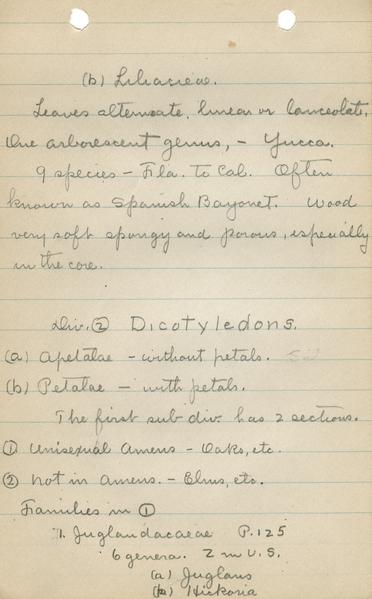 (b) Liliaceae.
Leaves alternate, linear or lanceolate.
One arborescent genus, - Yucca.
9 species - Fla. to Cal. Often
known as Spanish Bayonet. Wood
very soft spongy and porous, especially
in the core.
Div. ② Dicotyledons.
(a) Apetalae - without petals.
(b) Petalae - with petals.
The first sub div. has 2 sections.
① Unisexual Amens - Oaks, etc.
② Not in amens. - Elms, etc.
Families in ①
1. Juglandacaeae P. 125
6 genera. 2 in U.S.
(a) Juglans
(b) Hickoria